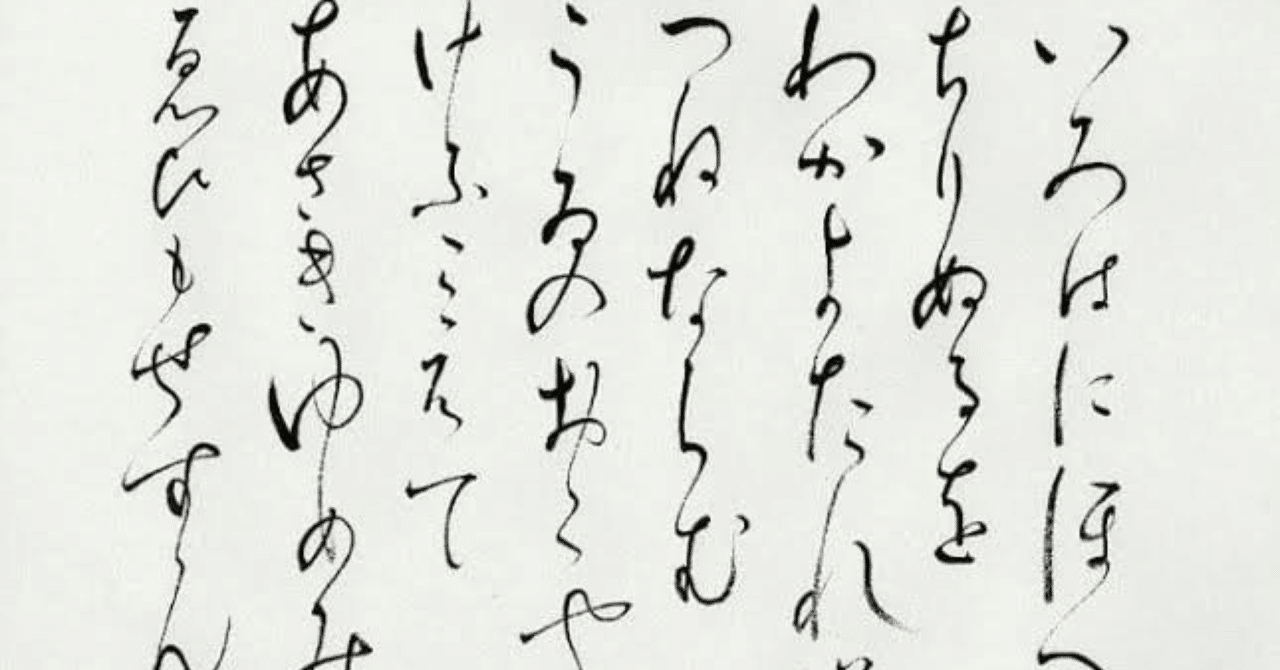 いろはにほへ
ちりぬるを
わかよたれ
つねならむ
うゐのおくや
けふこえて
あさきゆめみ
ゑひもせすん